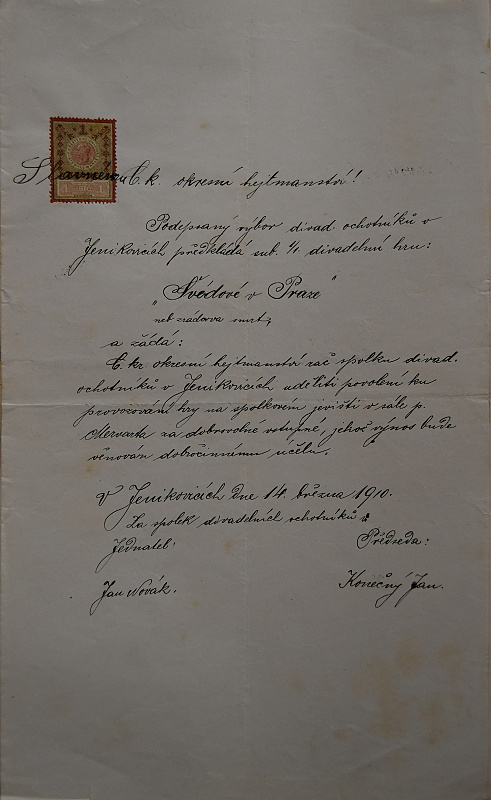 Slavnému C. k. okresní hejtmanství!
Podepsaný výbor divad. ochotníků v
Jenikovicích předkládá sub. 1/. divadelní hru:
„Švédové v Praze"
neb zrádcova smrt,
a žádá:
C. kr. okresní hejtmanství rač spolku divad.
ochotníků v Jenikovicích uděliti povolení ku
provozování hry na spolkovém jevišti v sále p.
Mervarta za dobrovolné vstupné, jehož výnos bude
věnován dobročinnému účelu.
V Jenikovicích dne 14. března 1910.
Za spolek divadelních ochotníků:
Jednatel: Předseda:
Jan Novák. Konečný Jan.